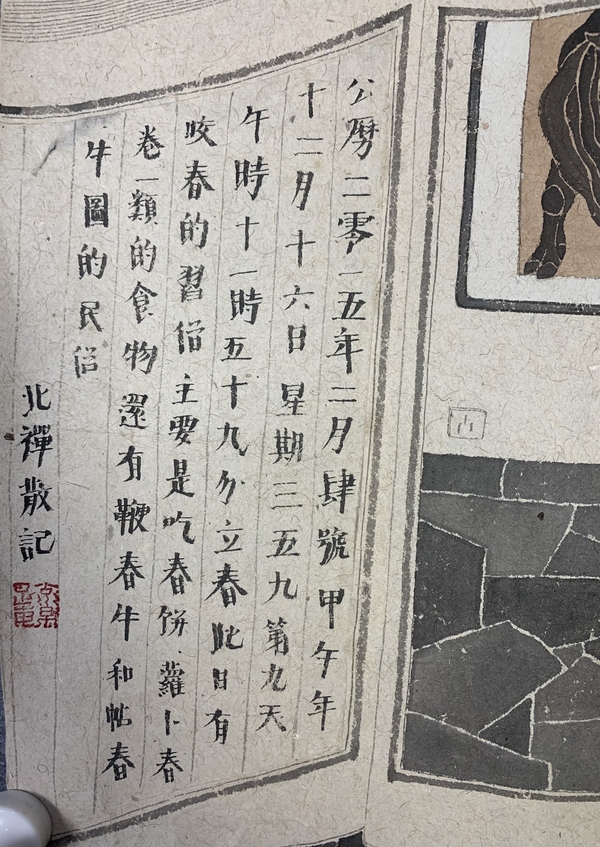 公曆二零一五年二月肆號甲午年
十二月十六日星期三五九第九天
午時十一時五十九分立春此日有
咬春的習俗主要是吃春餅蘿卜春
卷一類的食物還有鞭春牛和帖春
牛圖的民俗
北禪散記